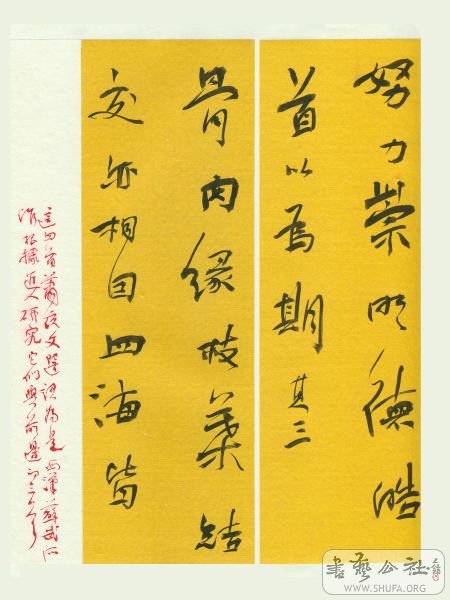 努力崇明德皓
首以為期其三
骨肉緣枝葉結
交亦相因四海皆
這四首蕭統文選認為是西漢蘇武所
作根據近人研究它們與前邊的三首
書藝公社
WWW.SHUFA.ORG